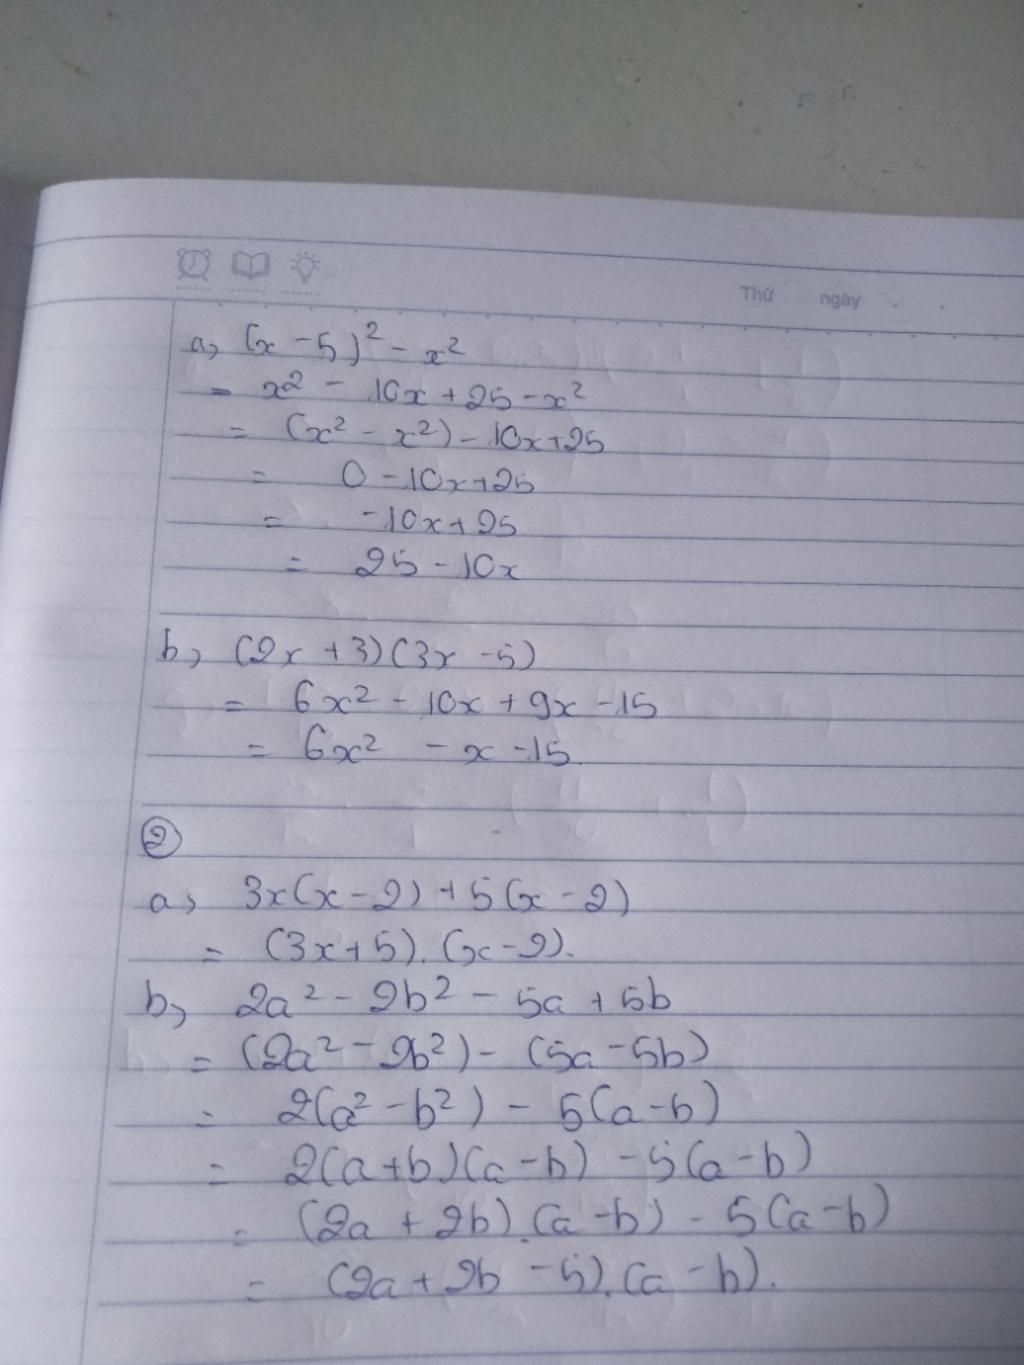 Thứ ngày
a, (x - 5)² - x²
= x² - 10x + 25 - x²
= (x² - x²) - 10x + 25
= 0 - 10x + 25
= -10x + 25
= 25 - 10x
b, (2x + 3)(3x - 5)
= 6x² - 10x + 9x - 15
= 6x² - x - 15.
②
a, 3x(x - 2) + 5(x - 2)
= (3x + 5).(x - 2).
b, 2a² - 2b² - 5a + 5b
= (2a² - 2b²) - (5a - 5b)
= 2(a² - b²) - 5(a - b)
= 2(a + b)(a - b) - 5(a - b)
= (2a + 2b).(a - b) - 5(a - b)
= (2a + 2b - 5).(a - b).